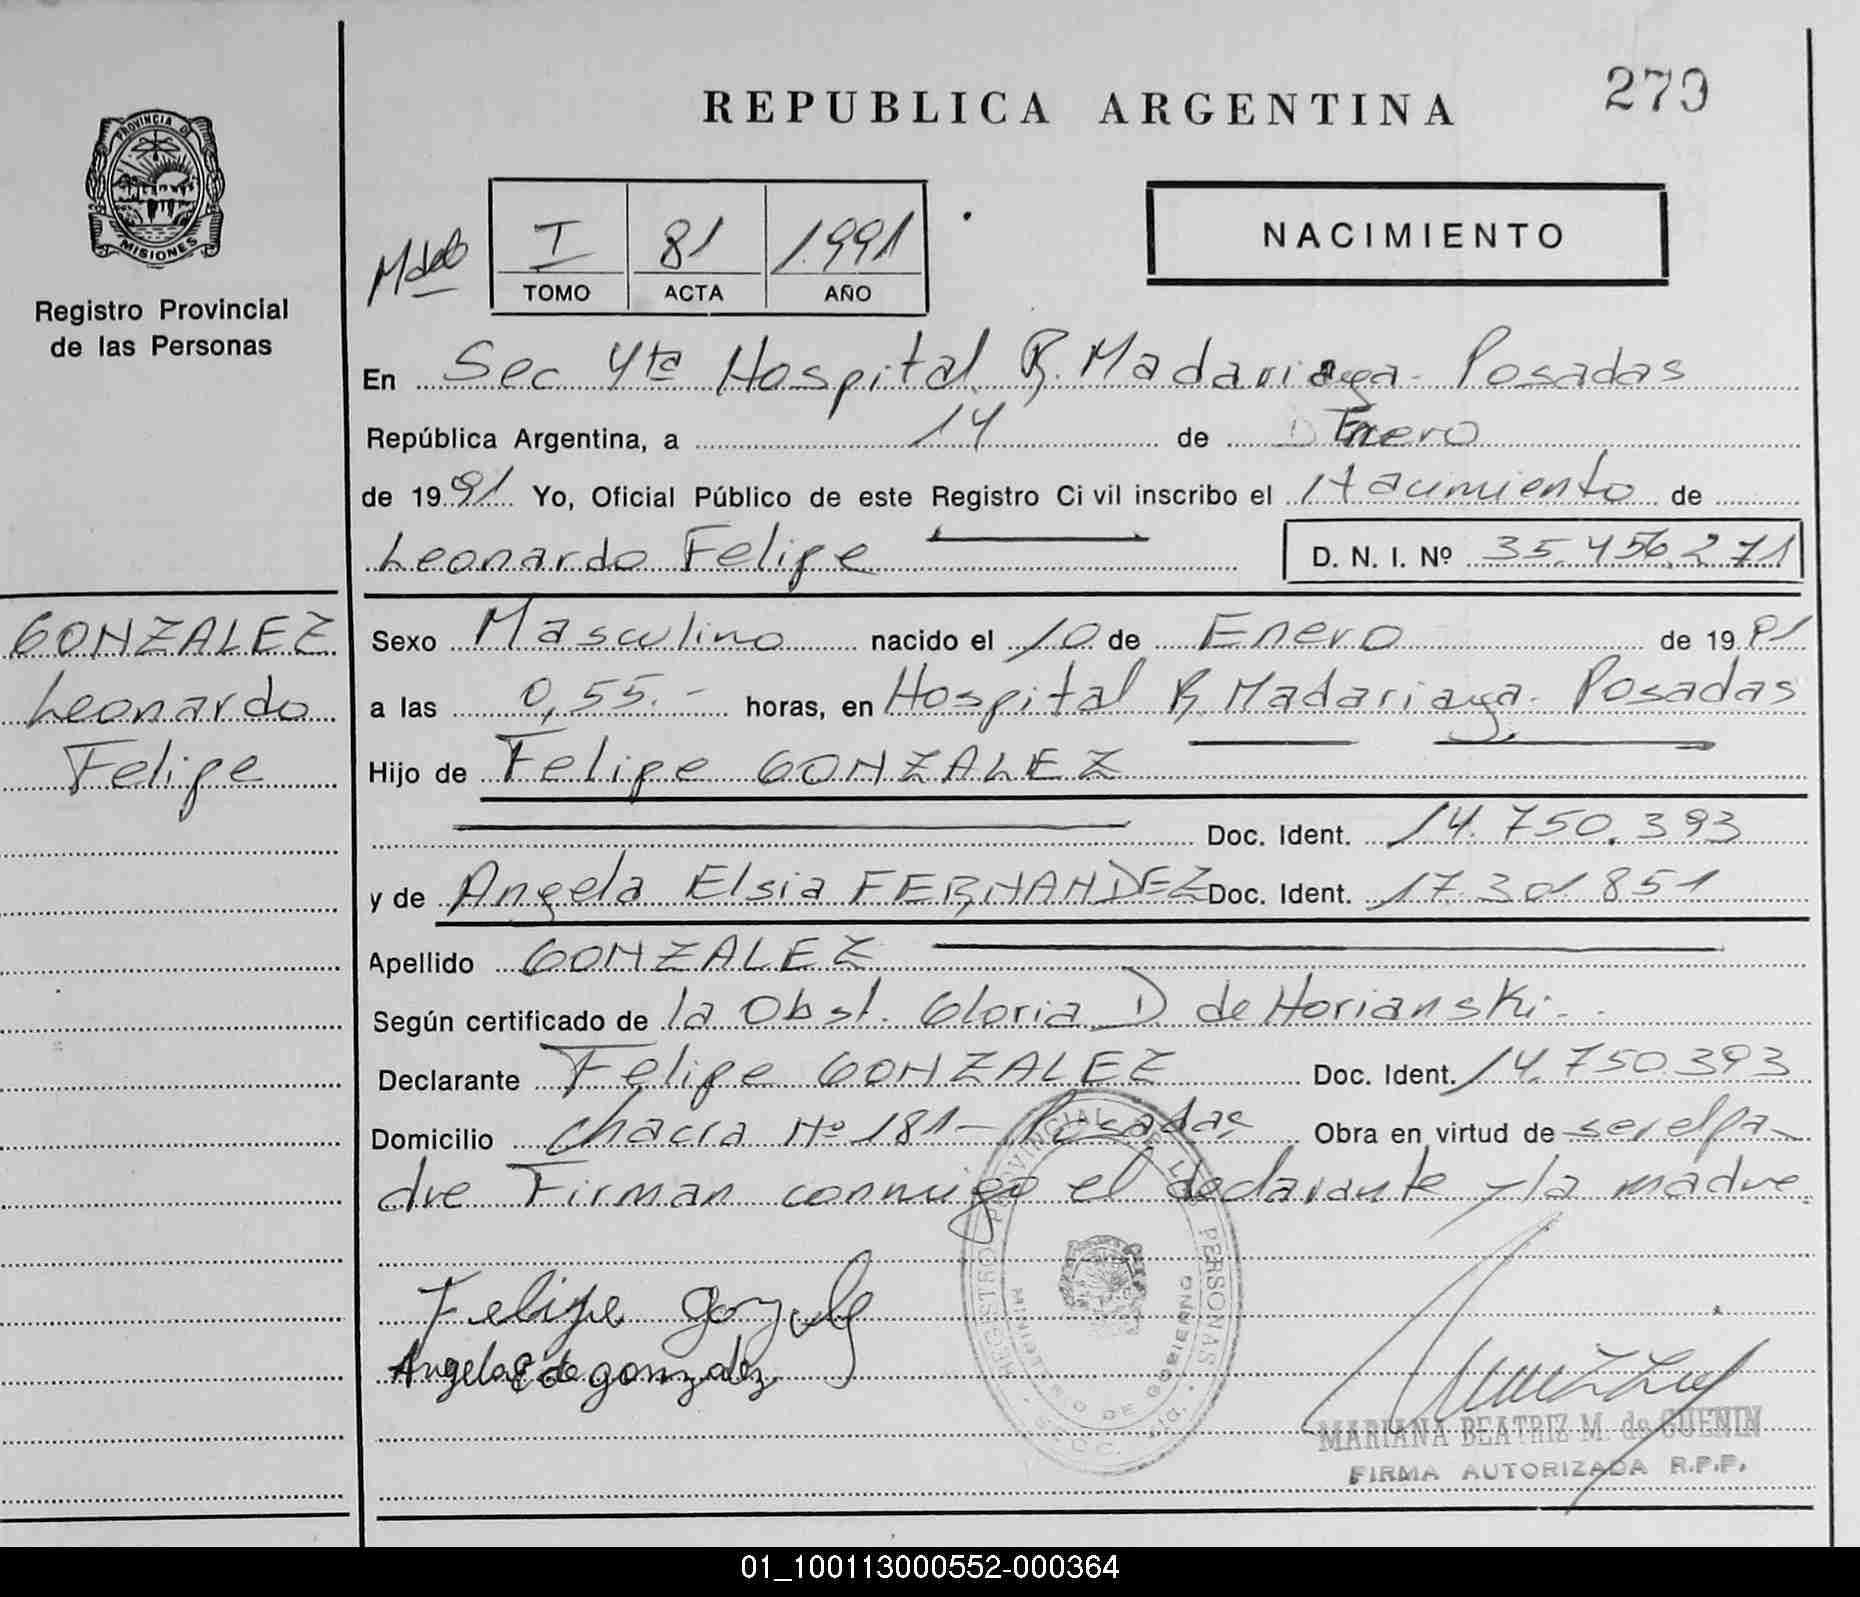 REPUBLICA ARGENTINA
279
PROVINCIA DE
MISIONES
Registro Provincial
de las Personas
I 81 1.991
TOMO ACTA AÑO
NACIMIENTO
En Sec 4ta Hospital R. Madariaga - Posadas
República Argentina, a 14 de Enero
de 1991 Yo, Oficial Público de este Registro Civil inscribo el Nacimiento de
Leonardo Felipe D. N. I. Nº 35.456.271
GONZALEZ
Leonardo
Felipe
Sexo Masculino nacido el 10 de Enero de 1991
a las 0,55.- horas, en Hospital R. Madariaga - Posadas
Hijo de Felipe GONZALEZ
Doc. Ident. 14.750.393
y de Angela Elsia FERNANDEZ Doc. Ident. 17.301.851
Apellido GONZALEZ
Según certificado de la Obst. Gloria D. de Horianski.-
Declarante Felipe GONZALEZ Doc. Ident. 14.750.393
Domicilio Chacra Nº 181 - Posadas Obra en virtud de ser el pa-
dre Firman conmigo el declarante y la madre.
REGISTRO PROVINCIAL DE LAS PERSONAS
MINISTERIO DE GOBIERNO
Felipe Gonzalez
Angela E de gonzalez
MARIANA BEATRIZ M. de GUENIN
FIRMA AUTORIZADA R.P.P.
01_100113000552-000364